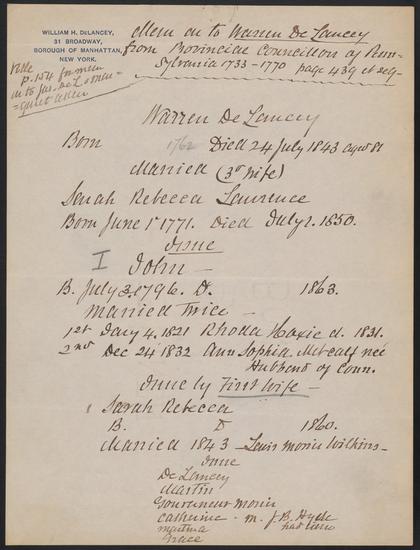 WILLIAM H. DeLANCEY,
31 BROADWAY,
BOROUGH OF MANHATTAN,
NEW YORK.
Mem as to Warren De Lancey
from Provincial Councillors of Penn-
sylvania 1733-1770 page 439 et seq-
Vide
p. 154 for mem
as to Jas. De L
Warren De Lancey
Born 1762 Died 24 July 1843 aged 81
Married (3d wife)
Sarah Rebecca Lawrence
Born June 1st 1771. Died July 1. 1850.
Issue
I John -
B. July 3. 1796. D. 1863.
Married Twice -
1st Jany 4. 1821 Rhoda Hoxie d. 1831.
2nd Dec 24 1832 Ann Sophia Metcalf née
Hubbard of Conn.
Issue by First Wife -
1 Sarah Rebecca
B. D 1860.
Married 1843 - Lewis Morris Wilkins -
Issue
De Lancey
Martin
Gouverneur Morris
Catherine - m. J. B. Hyde
Martina had issue
Grace